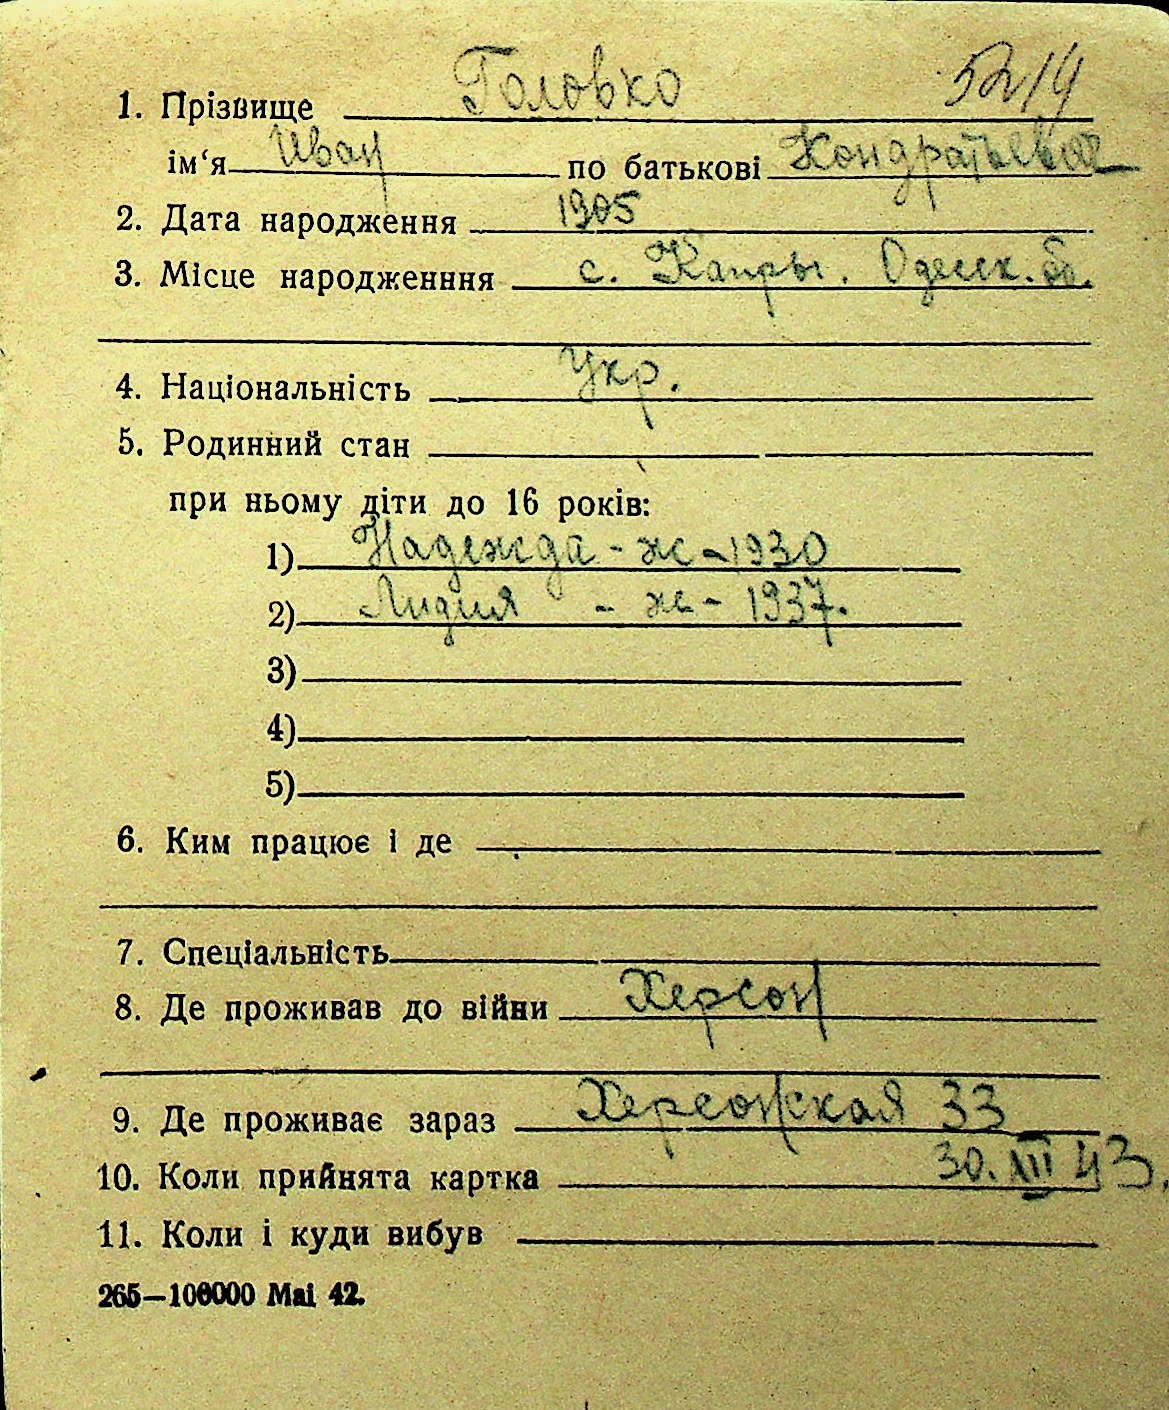 5214
1. Прізвище Головко
ім‘я Иван по батькові Кондратьевич
2. Дата народження 1905
3. Місце народженння с. Каиры. Одесск. об.
4. Національність Укр.
5. Родинний стан
при ньому діти до 16 років:
1) Надежда - ж - 1930
2) Лидия - ж - 1937.
3)
4)
5)
6. Ким працює і де
7. Спеціальність
8. Де проживав до війни Херсон
9. Де проживає зараз Херсонская 33
10. Коли прийнята картка 30. III 43.
11. Коли і куди вибув
265—100000 Mai 42.